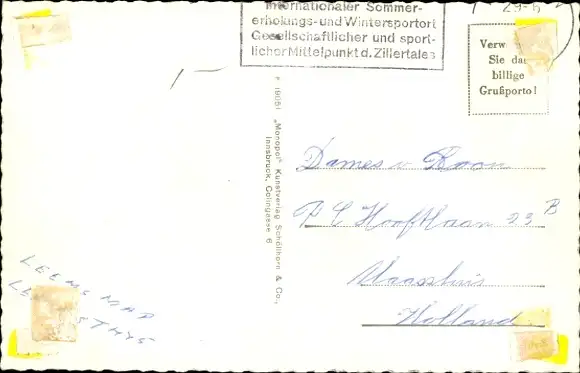 Internationaler Sommer-
erholungs- und Wintersportort
Gesellschaftlicher und sport-
licher Mittelpunkt d. Zillertales
29-6
Verw
Sie da
billige
Grußporto!
P 19051 „Monopol" Kunstverlag Schöllhorn & Co.,
Innsbruck, Colingasse 6
Dames v. Roon
P C Hooftlaan 23 B
Maassluis
Holland